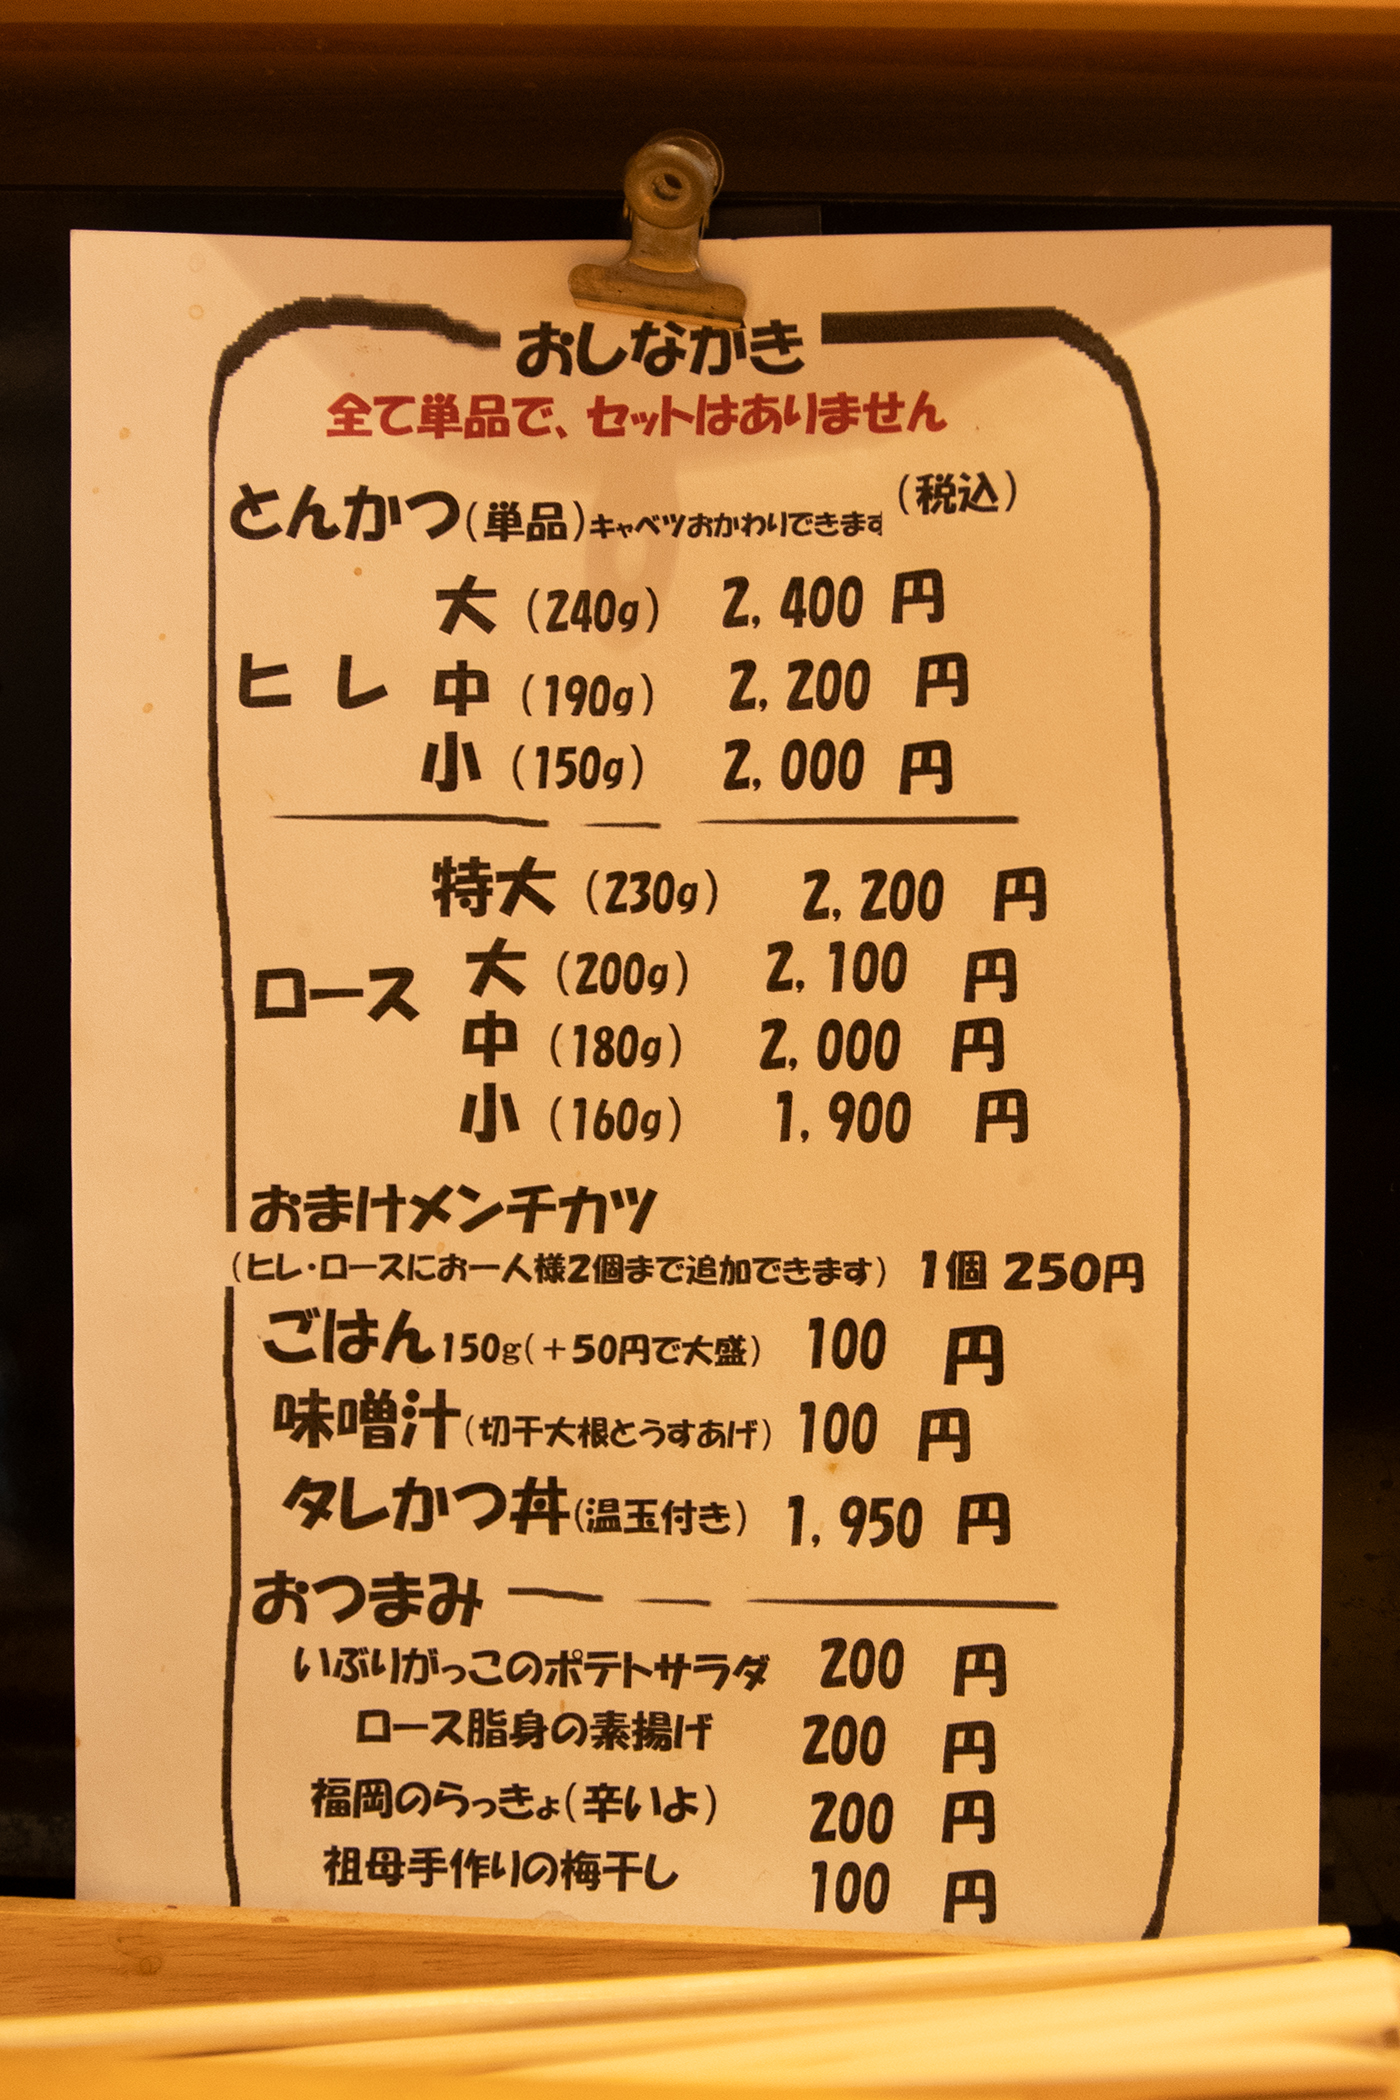 おしながき
全て単品で、セットはありません
とんかつ(単品)キャベツおかわりできます (税込)
大 (240g) 2,400 円
ヒレ 中 (190g) 2,200 円
小 (150g) 2,000 円
特大 (230g) 2,200 円
ロース 大 (200g) 2,100 円
中 (180g) 2,000 円
小 (160g) 1,900 円
おまけメンチカツ
(ヒレ・ロースにお一人様2個まで追加できます) 1個 250円
ごはん150g(+50円で大盛) 100 円
味噌汁(切干大根とうすあげ) 100 円
タレかつ丼(温玉付き) 1,950 円
おつまみ
いぶりがっこのポテトサラダ 200 円
ロース脂身の素揚げ 200 円
福岡のらっきょ(辛いよ) 200 円
祖母手作りの梅干し 100 円